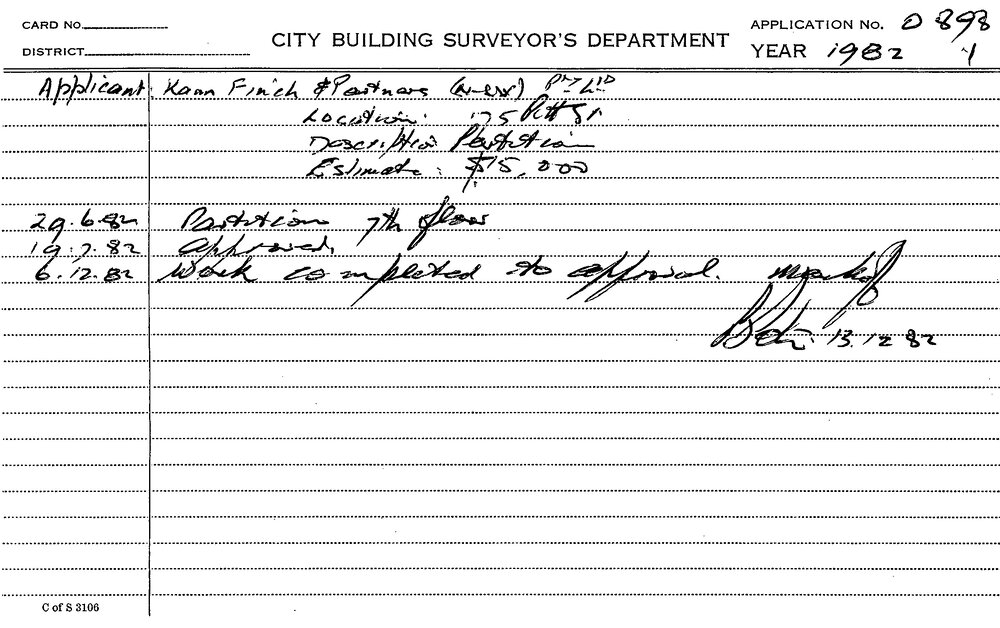 CARD No.
DISTRICT
CITY BUILDING SURVEYOR'S DEPARTMENT
APPLICATION No. 0 898
YEAR 1982 1
Applicant: Kann Finch & Partners (N-SW) PTY LTD
Location: 75 Pitt St.
Description Partition
Estimate: $15,000
29.6.82 Partition 7th floor
19.7.82 Approved.
6.12.82 Work completed to approval.
13.12.82
C of S 3106